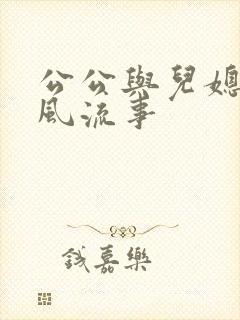 公公與兒媳
風流事
錢嘉樂